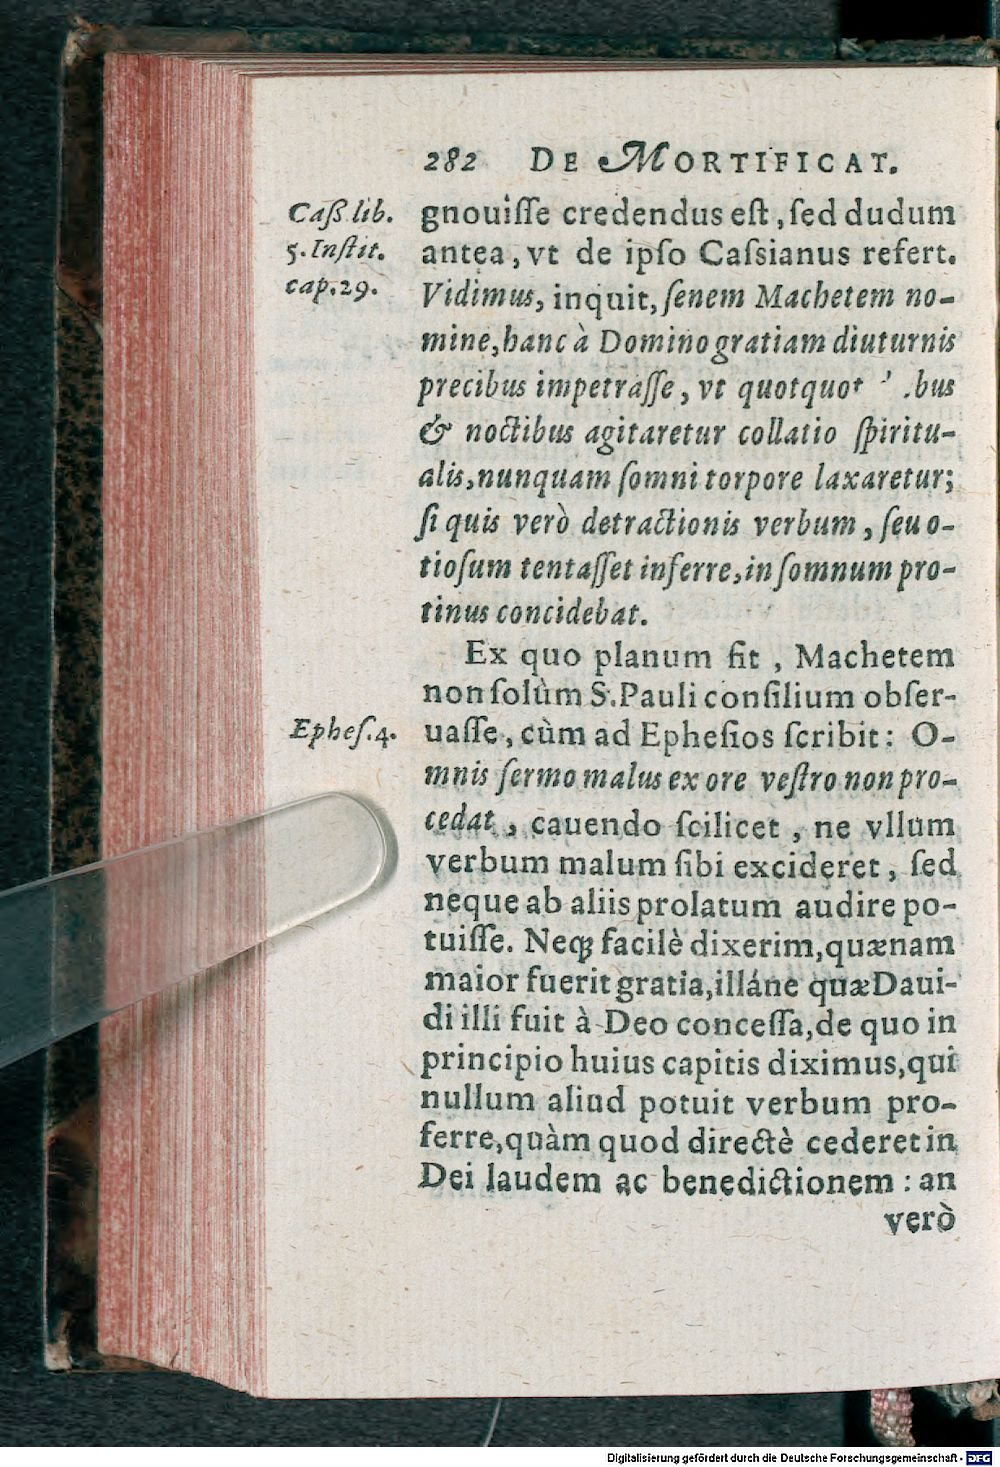 282 DE MORTIFICAT.
Caſſ. lib.
5. Inſtit.
cap. 29.
gnouiſſe credendus eſt, ſed dudum
antea, vt de ipſo Caſsianus refert.
Vidimus, inquit, ſenem Machetem no-
mine, hanc à Domino gratiam diuturnis
precibus impetraſſe, vt quotquot .bus
& noctibus agitaretur collatio ſpiritu-
alis, nunquam ſomni torpore laxaretur;
ſi quis verò detractionis verbum, ſeu o-
tioſum tentaſſet inferre, in ſomnum pro-
tinus concidebat.
Ex quo planum fit, Machetem
non ſolùm S. Pauli conſilium obſer-
Epheſ. 4.
uaſſe, cùm ad Epheſios ſcribit: O-
mnis ſermo malus ex ore veſtro non pro-
cedat, cauendo ſcilicet, ne vllum
verbum malum ſibi excideret, ſed
neque ab aliis prolatum audire po-
tuiſſe. Neq; facilè dixerim, quænam
maior fuerit gratia, illáne quæ Daui-
di illi fuit à Deo conceſſa, de quo in
principio huius capitis diximus, qui
nullum aliud potuit verbum pro-
ferre, quàm quod directè cederet in
Dei laudem ac benedictionem: an
verò
Digitalisierung gefördert durch die Deutsche Forschungsgemeinschaft - DFG